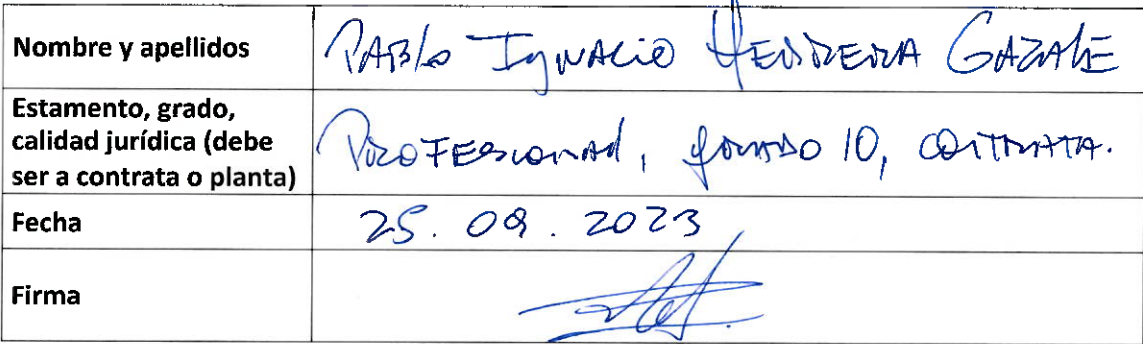 Nombre y apellidos
Pablo Ignacio Herrera Gazale
Estamento, grado,
calidad jurídica (debe
ser a contrata o planta)
Profesional, grado 10, contrata.
Fecha
25.09.2023
Firma